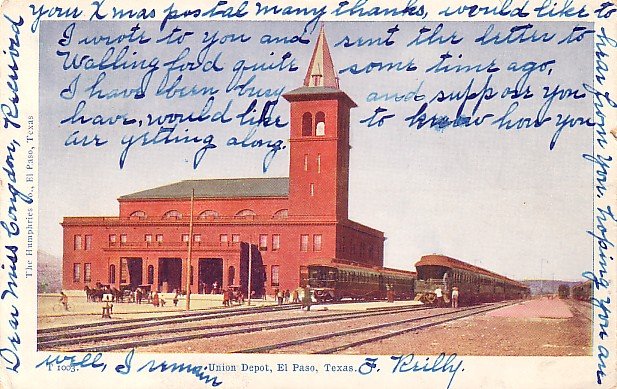 Dear Miss Congdon, Received
your Xmas postal many thanks, would like to
hear from you, hoping you are
I wrote to you and sent the letter to
Walling ford quite some time ago,
I have been busy and suppose you
have, would like to know how you
are getting along.
The Humphries Co., El Paso, Texas
well, I remain F. Reilly.
1003. Union Depot, El Paso, Texas.